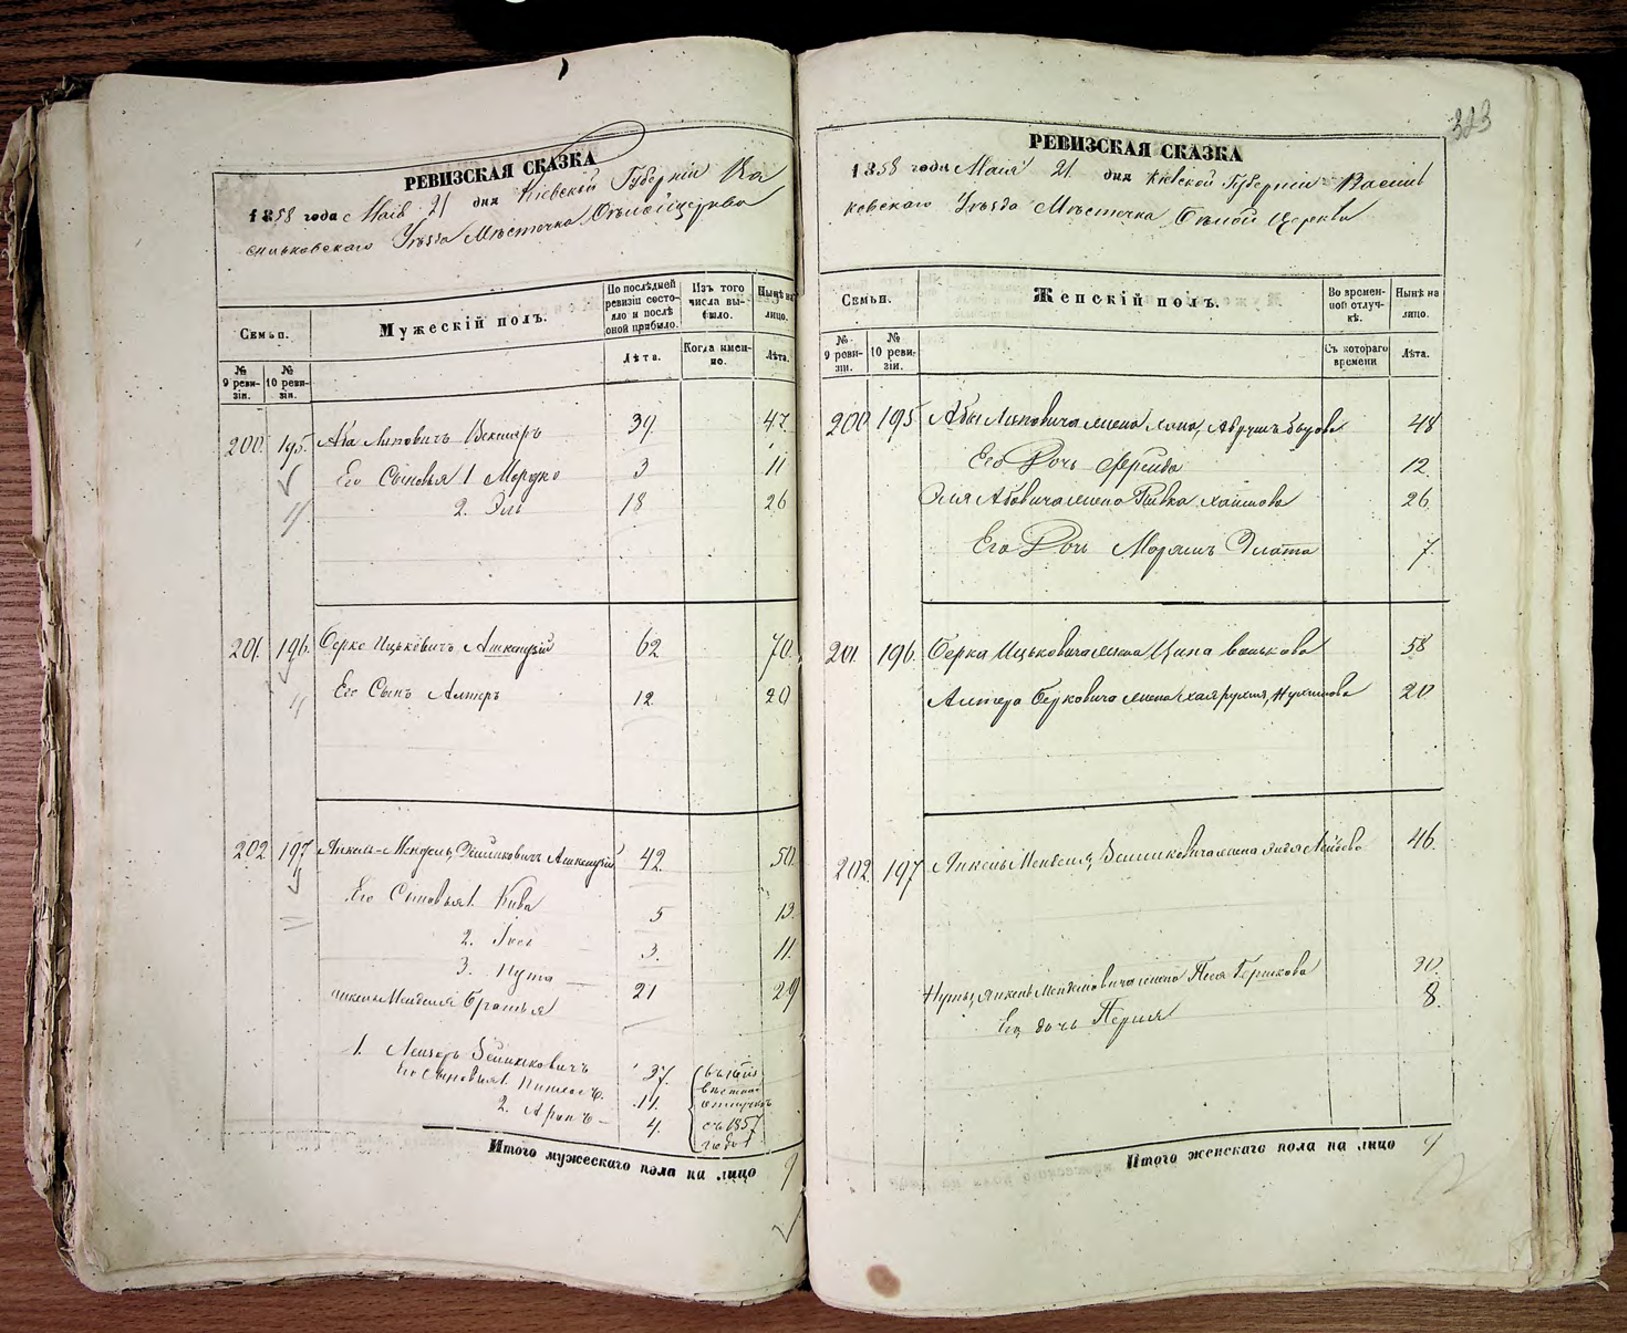 РЕВИЗСКАЯ СКАЗКА
1858 года Маія 21 дня Кіевской Губерніи Ва
сильковскаго Уѣзда Мѣстечка Бѣлой Церкви
Семьи.
Мужескій полъ.
По послѣдней ревизіи состояло и послѣ оной прибыло.
Изъ того числа выбыло.
Нынѣ на лицо.
№ 9 ревизіи.
№ 10 ревизіи.
Лѣта.
Когда именно.
Лѣта.
200. 195. Аба Липовичъ Векслеръ 39. 47.
Его Сыновья 1 Мордко 3 11
2. Эль 18 26
201. 196. Берко Ицьковичъ 62 70.
Его Сынъ Алтеръ 12 20
202 197 Янкель-Мендель 42. 50.
Его Сыновья 1. Кива 5 13.
2. 3. 11.
3. Нута 21 29
Янкель Менделя Братья
1. Лейзеръ 37.
Его Сыновья 1. 11.
2. Аронъ 4.
отлучкѣ
съ 1857
года
Итого мужескаго пола на лицо 9
323
РЕВИЗСКАЯ СКАЗКА
1858 года Маія 21 дня Кіевской Губерніи Василь
ковскаго Уѣзда Мѣстечка Бѣлой Церкви
Семьи.
Женскій полъ.
Во временной отлучкѣ.
Нынѣ на лицо.
№ 9 ревизіи.
№ 10 ревизіи.
Съ котораго времени
Лѣта.
200 195 Абы Липовича жена 48
Его Дочь Фрейда 12.
Эля Абовича жена Ривка Хаимова 26.
Его Дочь Марьямъ Злата 7.
201. 196. Берка Ицьковича жена Ципа 58
Алтера Берковича жена 20
202. 197 Янкель Менделя жена 46.
Нуты, Янкель Менделовича жена Песя Гершкова 30.
Его дочь Перля 8.
Итого женскаго пола на лицо 9